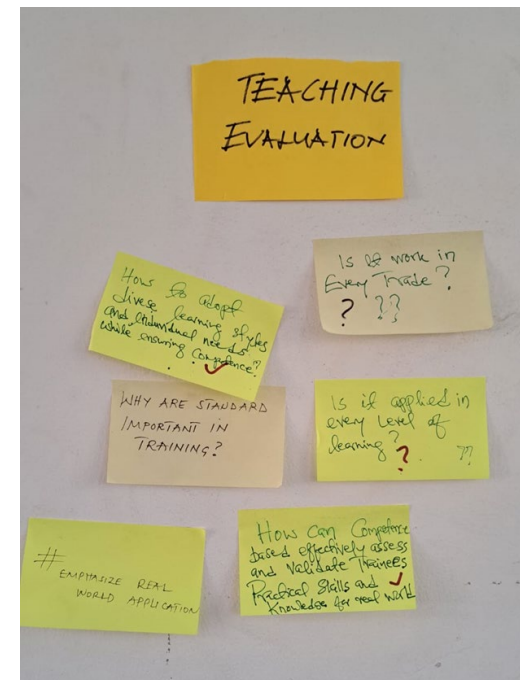 TEACHING
EVALUATION
Is it work in
Every Trade?
? ??
How to adopt
divese learning styles
and individual needs
while ensuring Competence?
WHY ARE STANDARD
IMPORTANT IN
TRAINING?
Is it applied in
every Level of
learning?
? ??
#
EMPHASIZE REAL
WORLD APPLICATION
How Can Competence
based effectively assess
and Validate Trainees
Practical Skills and
Knowledge for real world